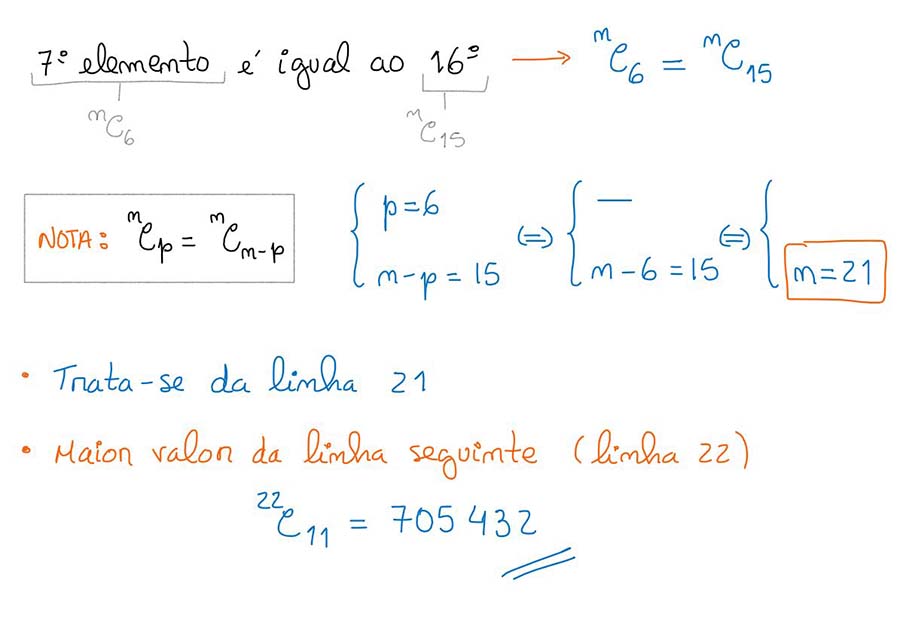 7º elemento é igual ao 16º → ⁿC₆ = ⁿC₁₅
ⁿC₆ ⁿC₁₅
NOTA: ⁿCₚ = ⁿCₙ₋ₚ
{ p=6 ⇔ { — ⇔ {
n-p=15 n-6=15 n=21
• Trata-se da linha 21
• Maior valor da linha seguinte (linha 22)
²²C₁₁ = 705 432